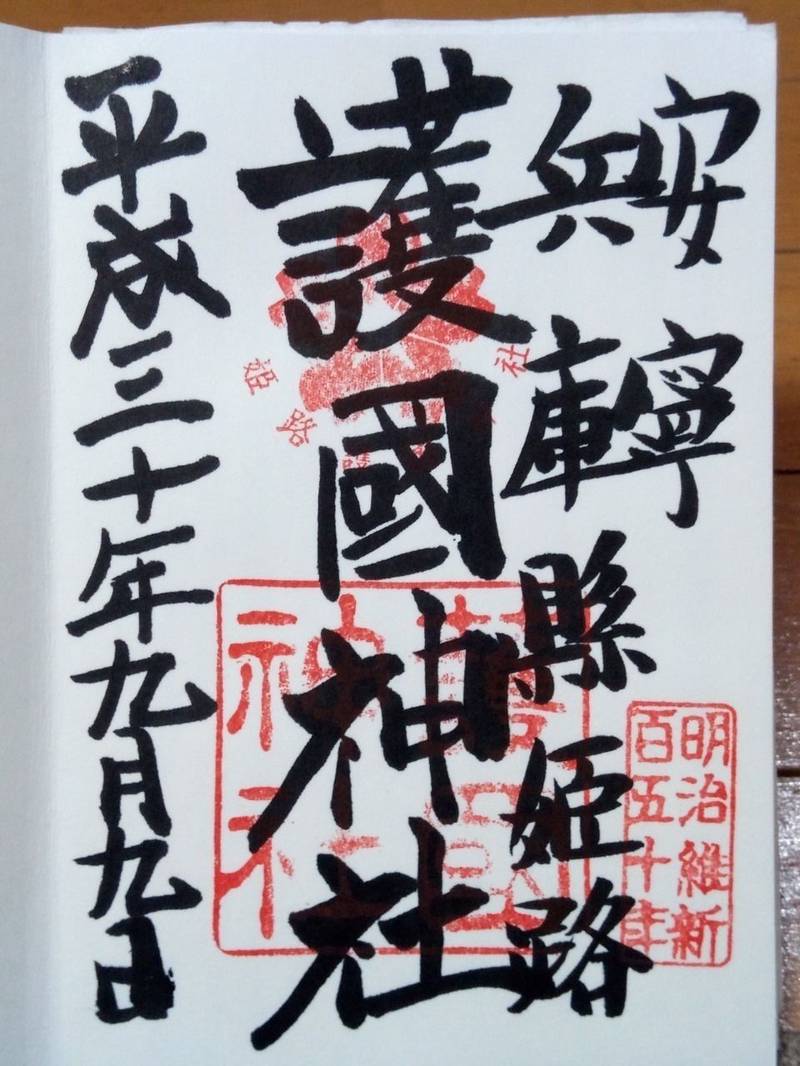 安寧
兵庫縣姫路
護國神社
平成三十年九月九日
明治維新
百五十年
護國
神社
姫路護
社